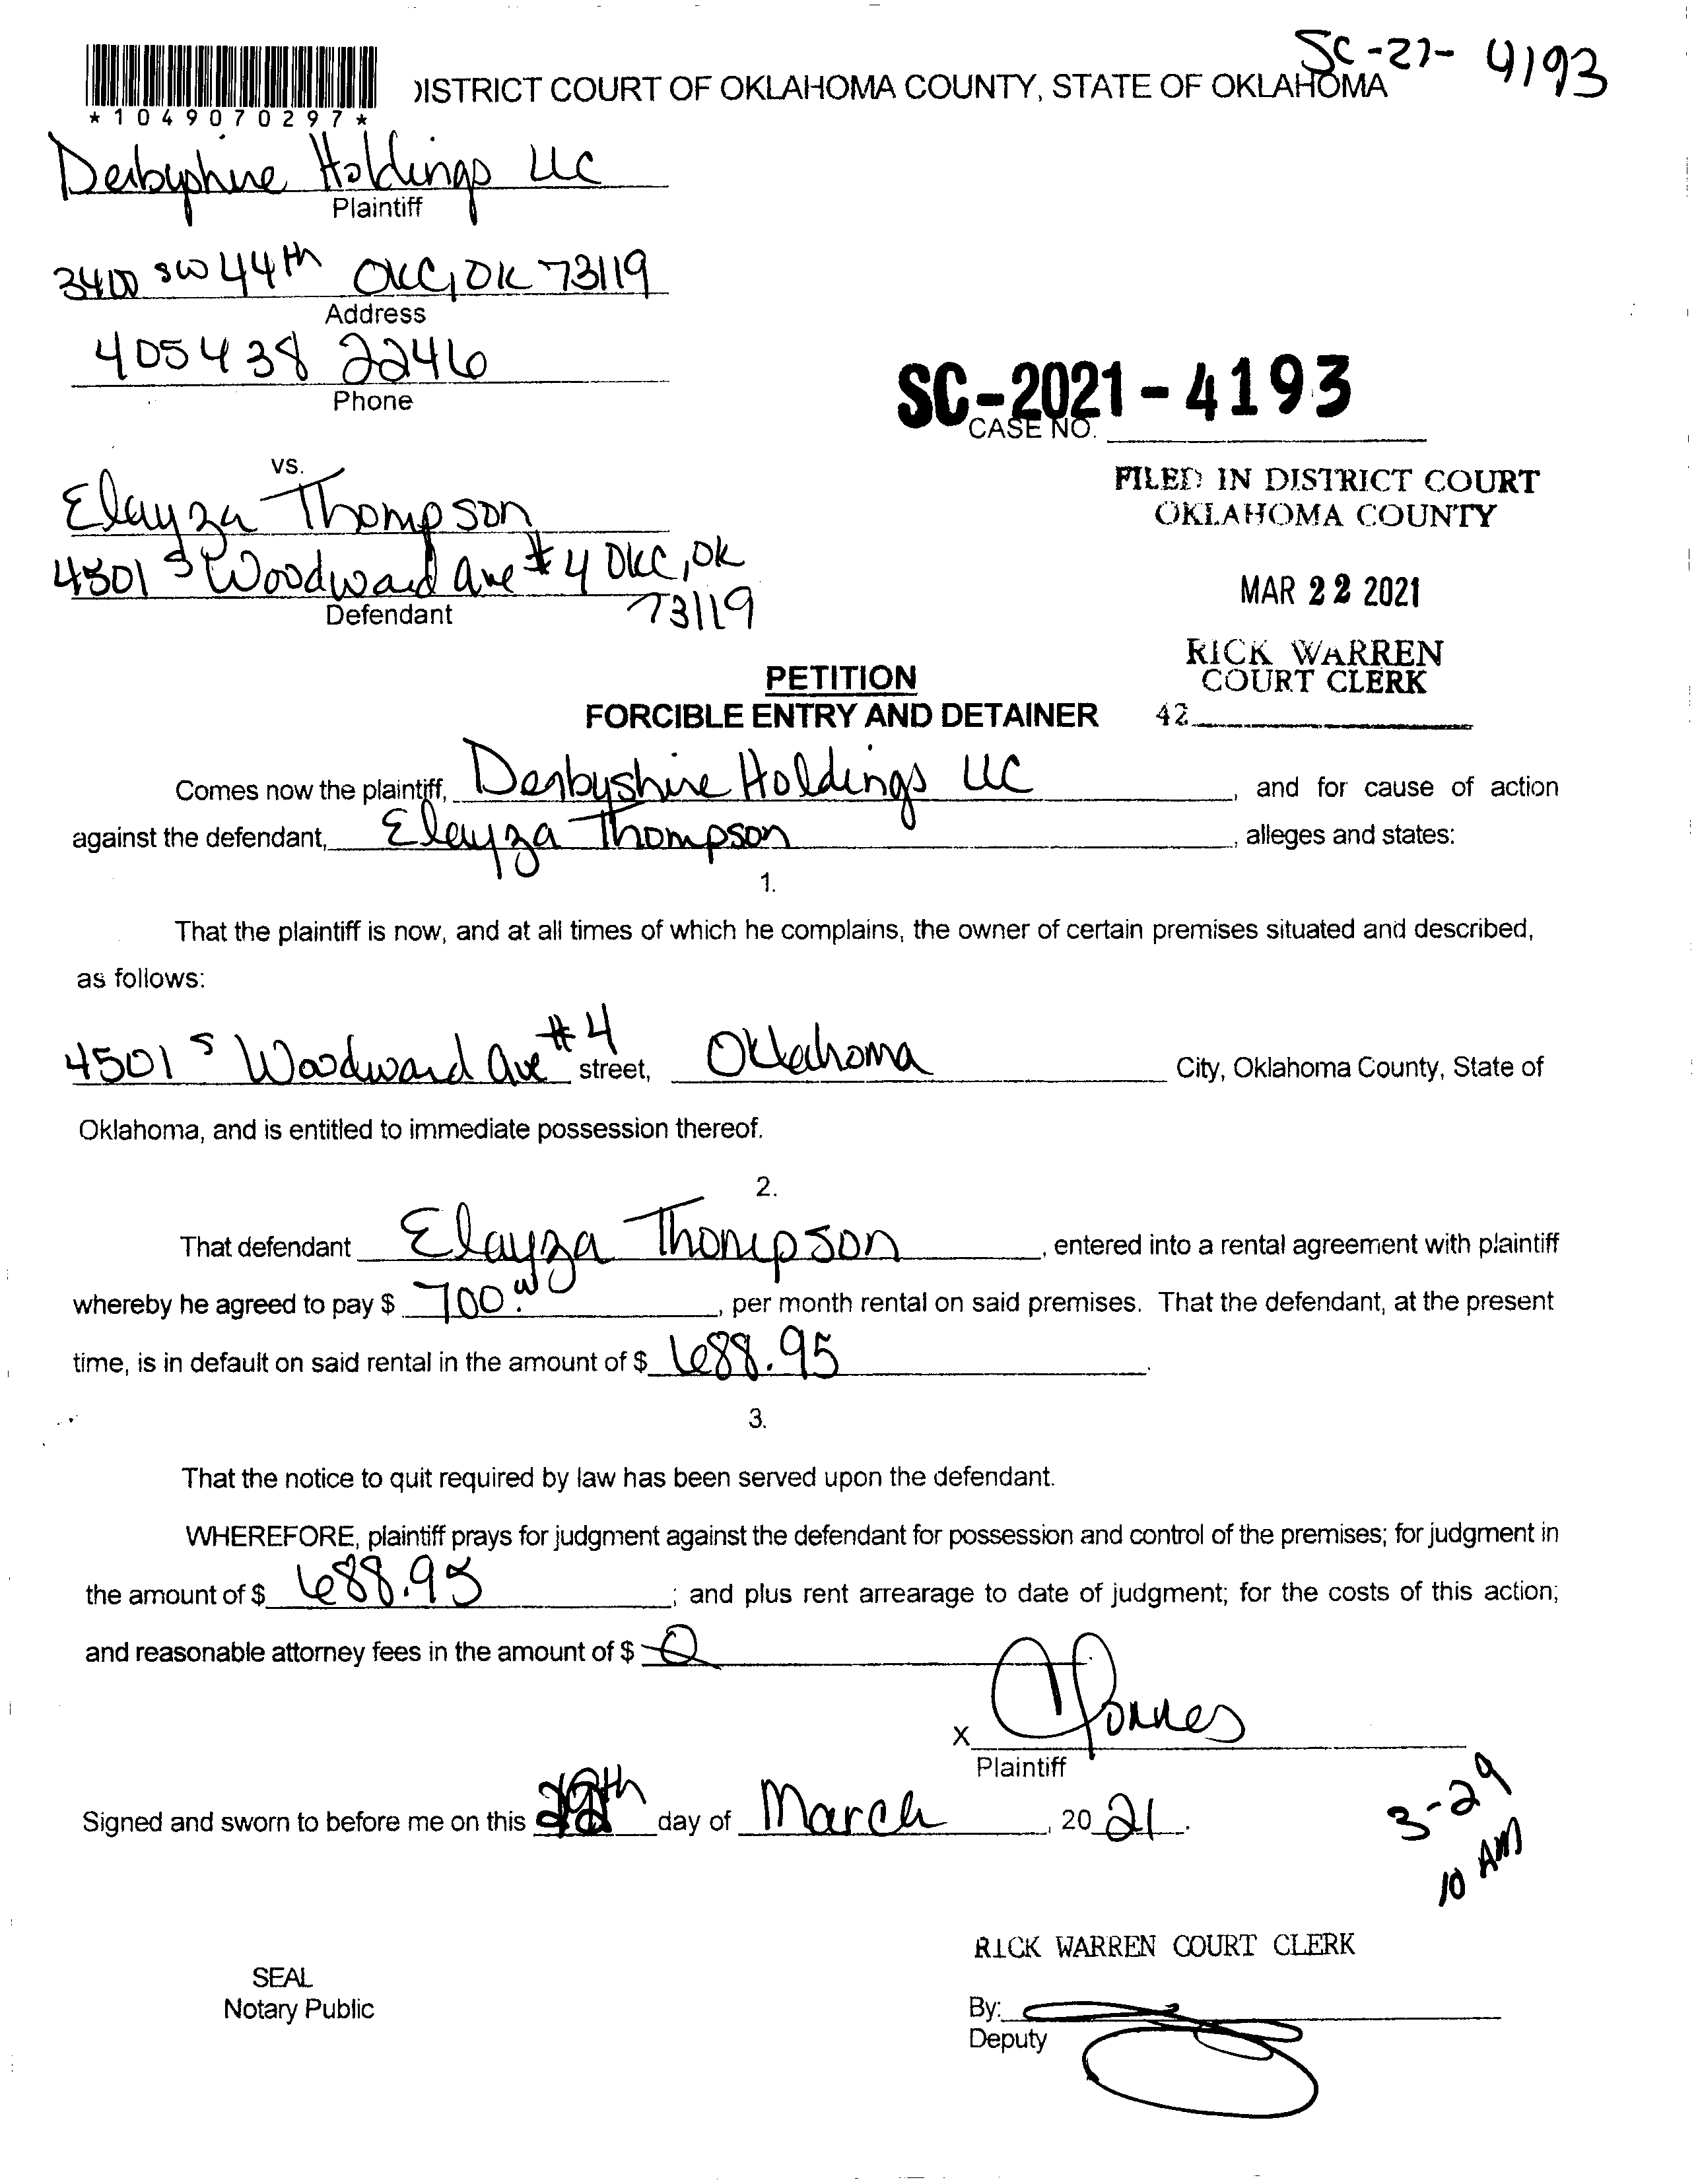 SC-21- 4193
*1049070297*
DISTRICT COURT OF OKLAHOMA COUNTY, STATE OF OKLAHOMA
Derbyshire Holdings LLC
Plaintiff
3400 SW 44th OKC, OK 73119
Address
405 438 2246
Phone
SC-2021-4193
CASE NO.
vs.
Elayza Thompson
4501 S Woodward Ave #4 OKC, OK
73119
Defendant
FILED IN DISTRICT COURT
OKLAHOMA COUNTY
MAR 22 2021
RICK WARREN
COURT CLERK
42
PETITION
FORCIBLE ENTRY AND DETAINER
Comes now the plaintiff, Derbyshire Holdings LLC, and for cause of action
against the defendant, Elayza Thompson, alleges and states:
1.
That the plaintiff is now, and at all times of which he complains, the owner of certain premises situated and described,
as follows:
4501 S Woodward Ave #4 street, Oklahoma City, Oklahoma County, State of
Oklahoma, and is entitled to immediate possession thereof.
2.
That defendant Elayza Thompson, entered into a rental agreement with plaintiff
whereby he agreed to pay $ 700.00, per month rental on said premises. That the defendant, at the present
time, is in default on said rental in the amount of $ 688.95.
3.
That the notice to quit required by law has been served upon the defendant.
WHEREFORE, plaintiff prays for judgment against the defendant for possession and control of the premises; for judgment in
the amount of $ 688.95; and plus rent arrearage to date of judgment; for the costs of this action;
and reasonable attorney fees in the amount of $ 0
X
Plaintiff
Signed and sworn to before me on this day of March, 2021.
3-29
10 AM
RICK WARREN COURT CLERK
SEAL
Notary Public
By:
Deputy